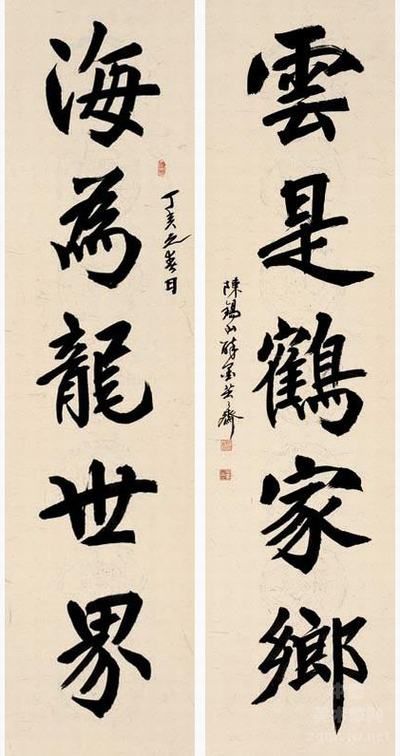 雲是鶴家鄉
海為龍世界
丁亥之春日
陳錫山